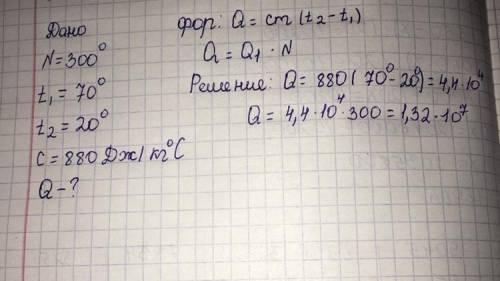 Дано
N=300°
t₁ = 70°
t₂ = 20°
C = 880 Дж/кг°С
Q - ?
фор: Q = cm (t₂ - t₁)
Q = Q₁ · N
Решение: Q = 880 (70° - 20°) = 4,4 · 10⁴
Q = 4,4 · 10⁴ · 300 = 1,32 · 10⁷